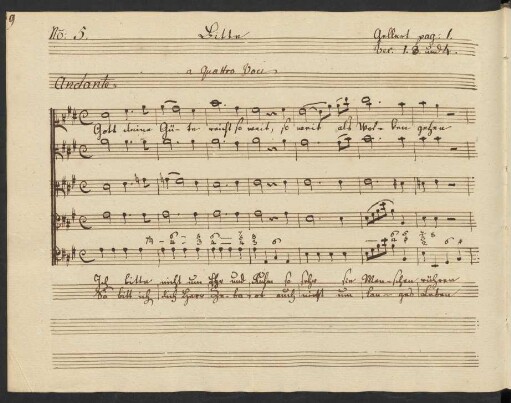 9
No: 5. Bitte Gellert pag: 1.
Ver. 1. 3. und 4.
a quattro Voci
Andante
Gott deine Gü - te reicht so weit, so weit als Wol - ken gehen
Ich bitte nicht um Ehr und Ruhm so sehr sie Men - schen rühren
So bitt ich dich Herr Ze - ba - oth auch nicht um lan - ges Leben